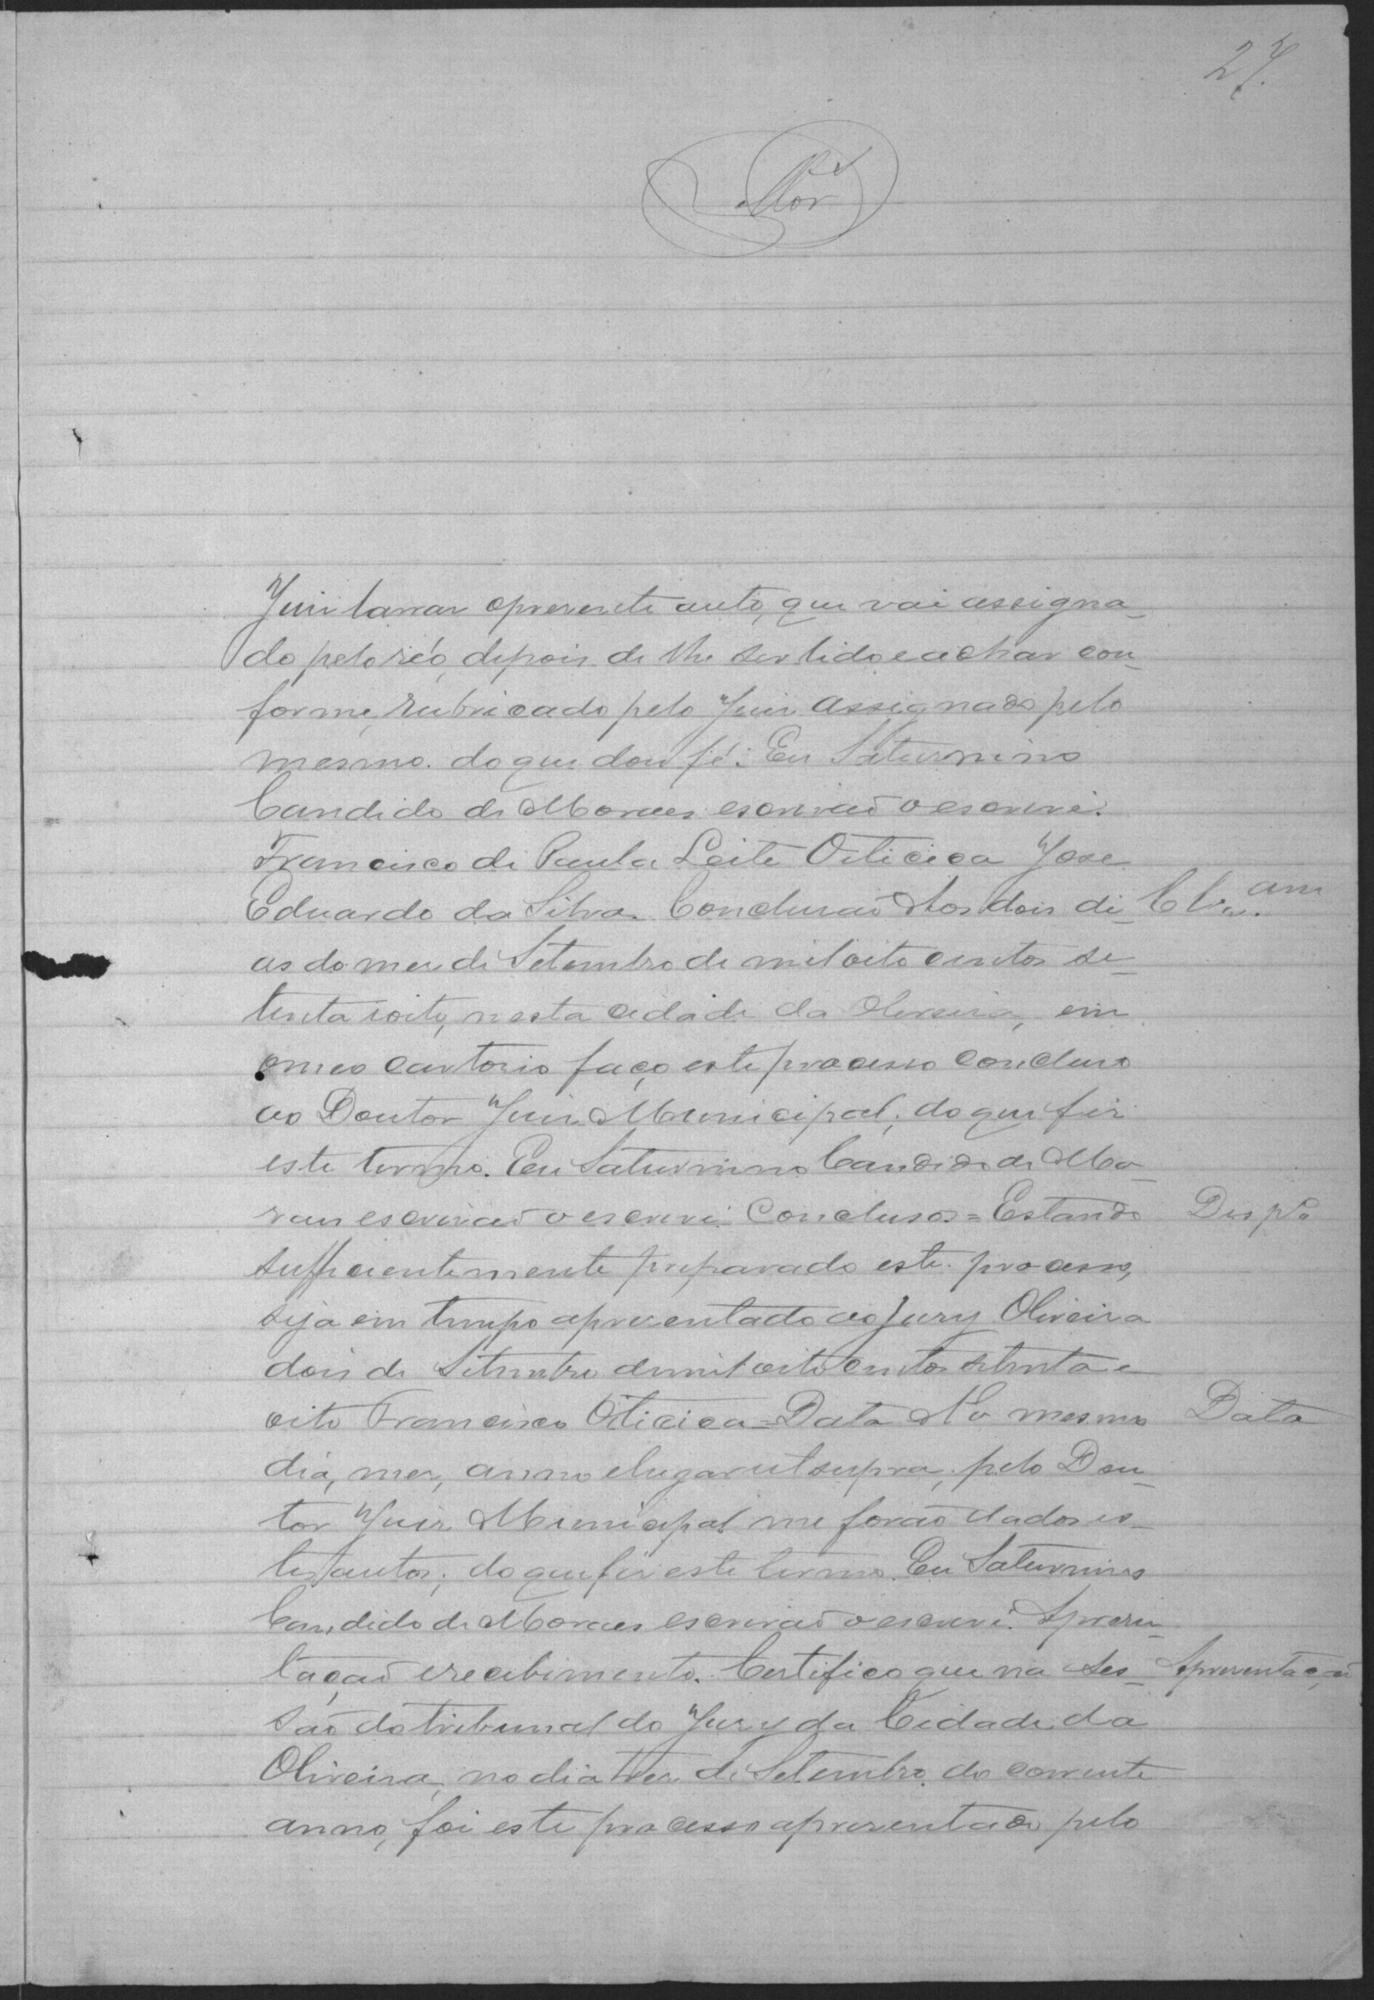 27.
Juiz lavrar o presente auto, que vai assigna-
do pelo réo, depois de lhe ser lido e achar con-
forme, rubricado pelo Juiz assignado pelo
mesmo. do que dou fé. Eu Saturnino
Candido de Moraes escrivaõ o escrevi.
Francisco de Paula Leite Oiticica Jose
Eduardo da Silva. Conclusaõ Aos dois di-
as do mez de Setembro de mil oito centos se-
tenta e oito, nesta cidade da Oliveira, em
o meo cartorio faço este processo concluso
ao Doutor Juiz Municipal; do que fiz
este termo. Eu Saturnino Candido de Mo-
raes escrivaõ o escrevi. Conclusos = Estando Desp.º
sufficientemente preparado este processo,
seja em tempo apresentado ao Jury Oliveira
dois de Setembro de mil oito centos setenta e
oito Francisco Oiticica = Data No mesmo Data
dia, mez, anno e lugar ut supra, pelo Dou-
tor Juiz Municipal me foraõ dados es-
tes autos; do que fiz este termo. Eu Saturnino
Candido de Moraes escrivaõ o escrevi. Apresen-
taçaõ e recebimento. Certifico que na ses- Apresentaçaõ
saõ do tribunal do Jury da Cidade da
Oliveira, no dia tres de Setembro do corrente
anno, foi este processo apresentado pelo